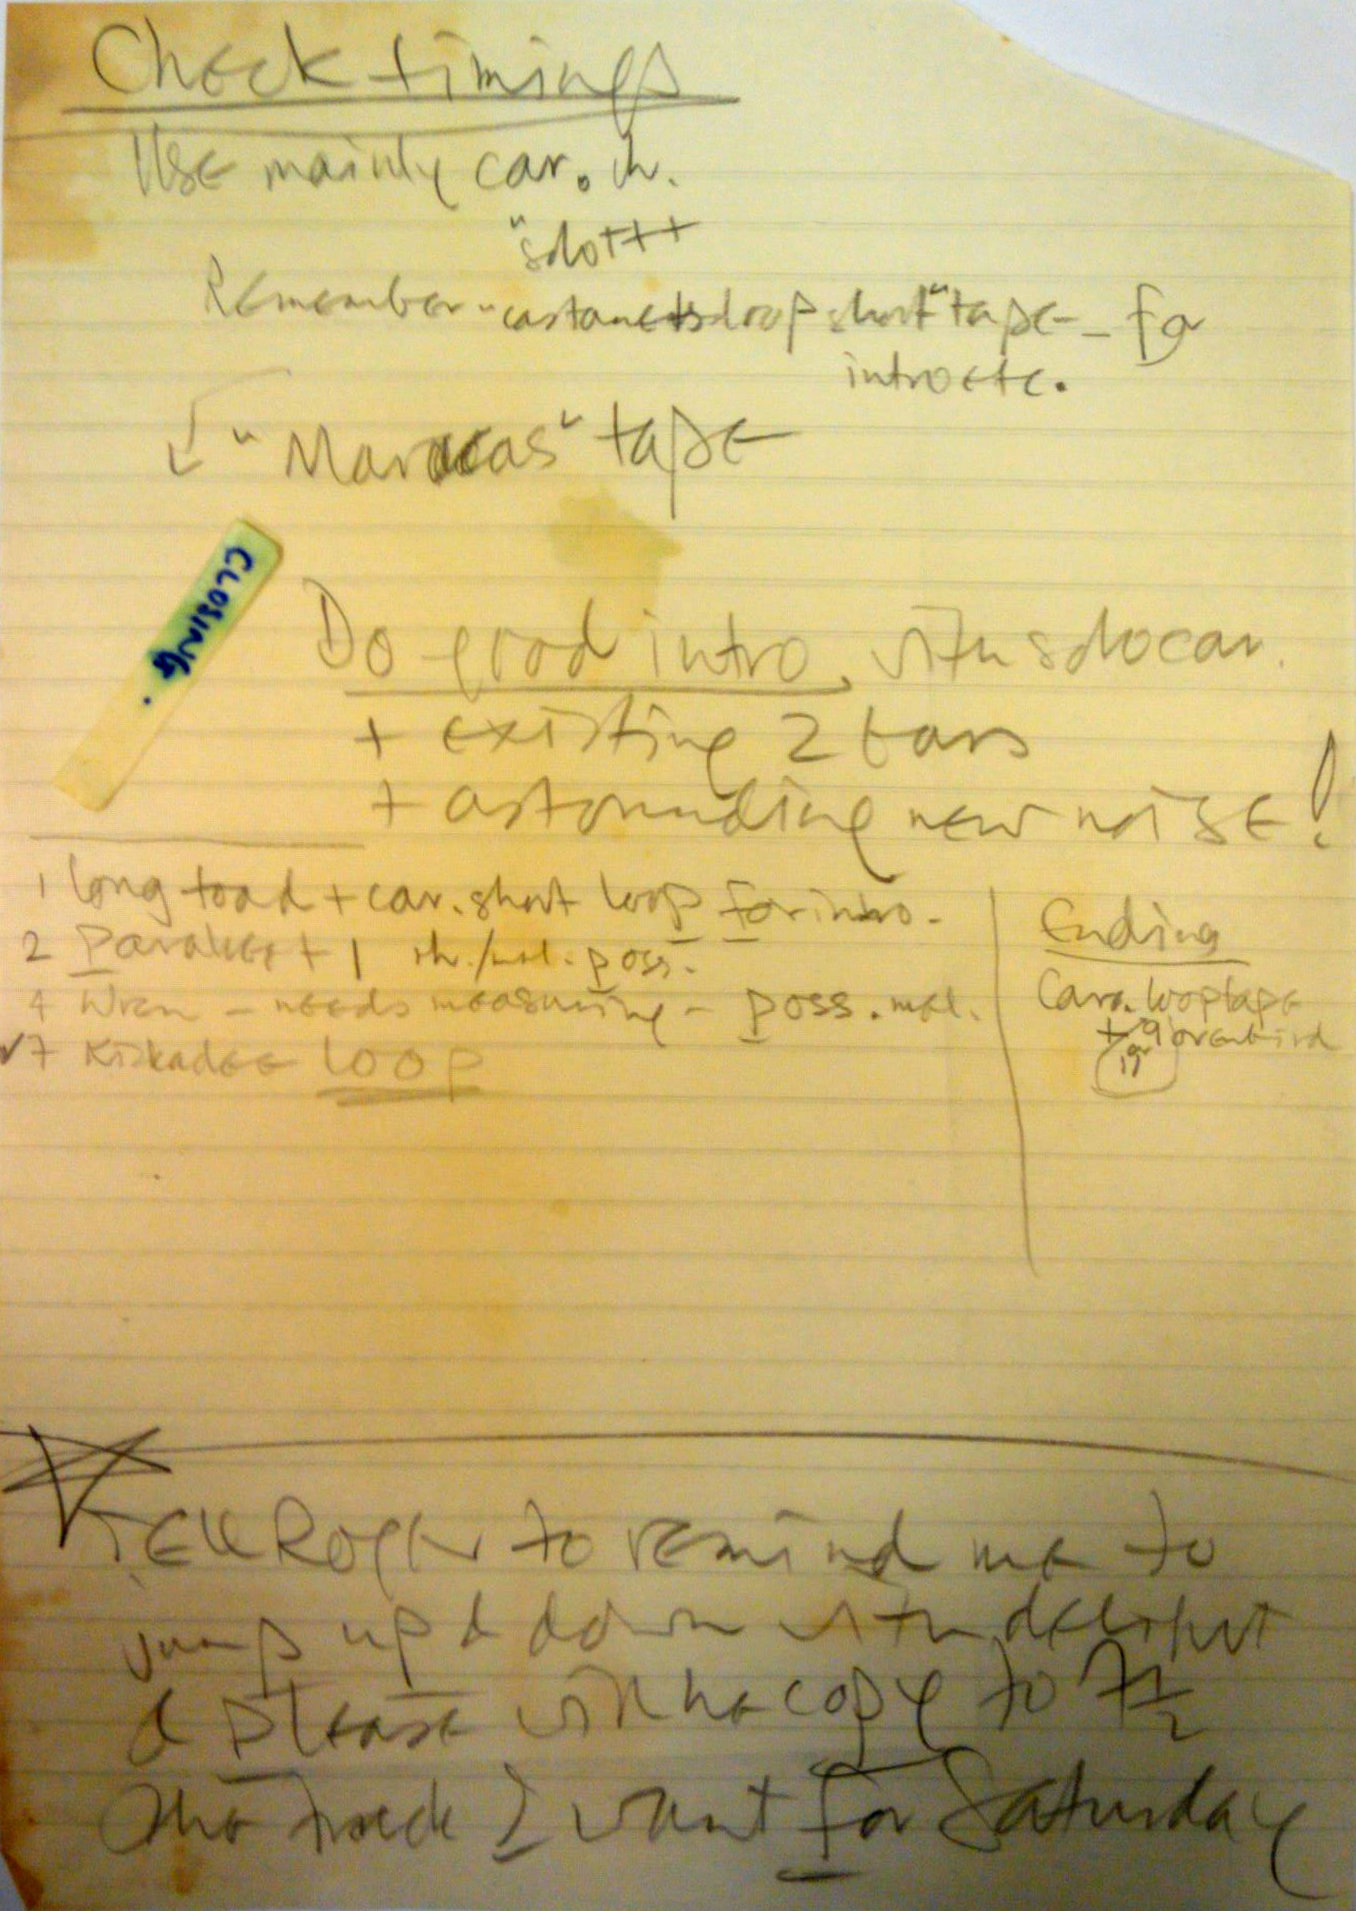 Check timings
Use mainly car. rh.
"solo +++
Remember "castanets loop short" tape - for
intro etc.
"Maracas" tape
CLOSING.
Do good intro, with solo car.
+ existing 2 bars
+ astounding new noise!
1 long toad + car. short loop for intro.
2 Parakeet + 1 rh./mel. poss.
4 Wren - needs measuring - poss. mel.
√7 Kiskadee loop
Ending
Cara. loop tape
+ 9 ovenbird
or 19
TELL Roger to remind me to
jump up & down with delight
& please will he copy to 7½
the track I want for Saturday